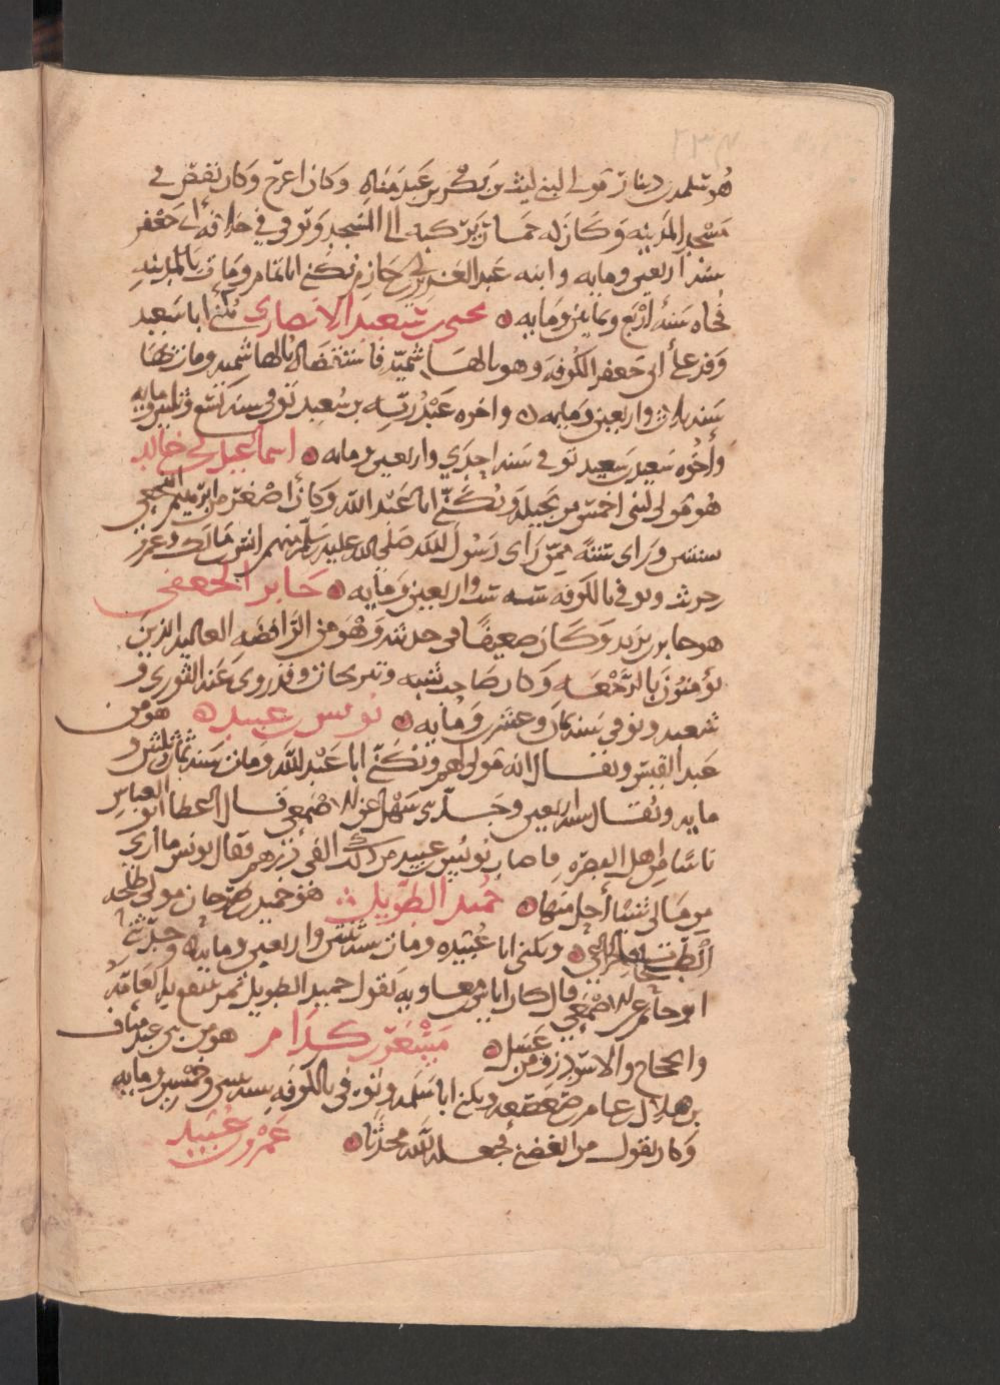 هو سلمه بن دينار مولى لبني ليث بن بكر بن عبد مناه وكان اعرج وكان يقص في
مسجد المدينه وكان له حمار يركبه الى المسجد وتوفي في خلافه ابي جعفر
سنه اربعين ومايه وابنه عبد العزيز بن ابي حازم يكنى ابا تمام ومات بالمدينه
فجاه سنه اربع وثمانين ومايه ۞ يحيى بن سعيد الانصاري يكنى ابا سعيد
وقدم على ابي جعفر الكوفه وهو بالهاشميه فاستقضاه بالهاشميه ومات بها
سنه ثلاث واربعين ومايه ۞ واخوه عبد ربه بن سعيد توفي سنه تسع وثلثين ومايه
واخوه سعد بن سعيد توفي سنه احدي واربعين ومايه ۞ اسماعيل بن ابي خالد
هو مولى لبني احمس من بجيله ويكنى ابا عبد الله وكان اصغر من ابرهيم النخعي
بسنتين وراى سته ممن راى رسول الله صلى الله عليه وسلم منهم انس بن مالك وعمرو
بن حريث وتوفي بالكوفه سنه ست واربعين ومايه ۞ جابر الجعفي
هو جابر بن يزيد وكان ضعيفا في حديثه وهو من الرافضه الغاليه الذين
يومنون بالرجعه وكان صاحب شبه ونيرنجات وقد روى عنه الثوري و
شعبه وتوفي سنه ثمان وعشرين ومايه ۞ يونس بن عبيد ۞ هو من
عبد القيس ويقال انه مولى لهم ويكنى ابا عبد الله ومات سنه ثمان وثلثين و
مايه ويقال سنه اربعين وحدثني سهل عن الاصمعي قال اعطا ابو العباس
ناسا من اهل البصره فاصاب يونس بن عبيد من ذلك الفي درهم فقال يونس ما ارى
من مالي شيا احل منها ۞ حميد الطويل هو حميد بن طرخان مولى طلحه
الطلحات الخزاعي ۞ ويكنى ابا عبيده ومات سنه ثنتين واربعين ومايه ۞ وحدثني
ابو حاتم عن الاصمعي قال كان اياس بن معاويه يقول حميد الطويل ثمن ينتفع به العامه
والحجاج والاسود زق من عسل ۞ مسعر بن كدام هو من بني عبد مناف
بن هلال بن عامر بن صعصعه ويكنى ابا سلمه وتوفي بالكوفه سنه ثنتين وخمسين ومايه
وكان يقول من ابغضني فجعله الله محدثا ۞ عمرو بن عبيد